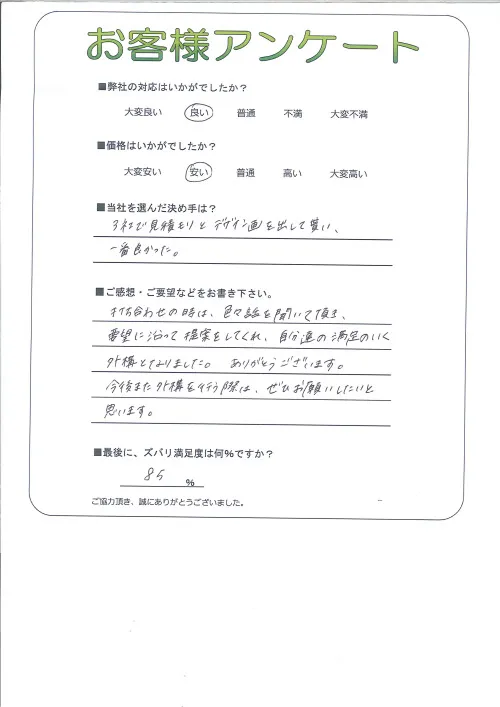 お客様アンケート
■弊社の対応はいかがでしたか？
大変良い 良い 普通 不満 大変不満
■価格はいかがでしたか？
大変安い 安い 普通 高い 大変高い
■当社を選んだ決め手は？
3社で見積もりとデザイン画を出して貰い、
一番良かった。
■ご感想・ご要望などをお書き下さい。
打ち合わせの時は、色々話を聞いて頂き、
要望に沿って提案をしてくれ、自分達の満足のいく
外構となりました。ありがとうございます。
今後また外構を行う際は、ぜひお願いしたいと
思います。
■最後に、ズバリ満足度は何％ですか？
85 ％
ご協力頂き、誠にありがとうございました。